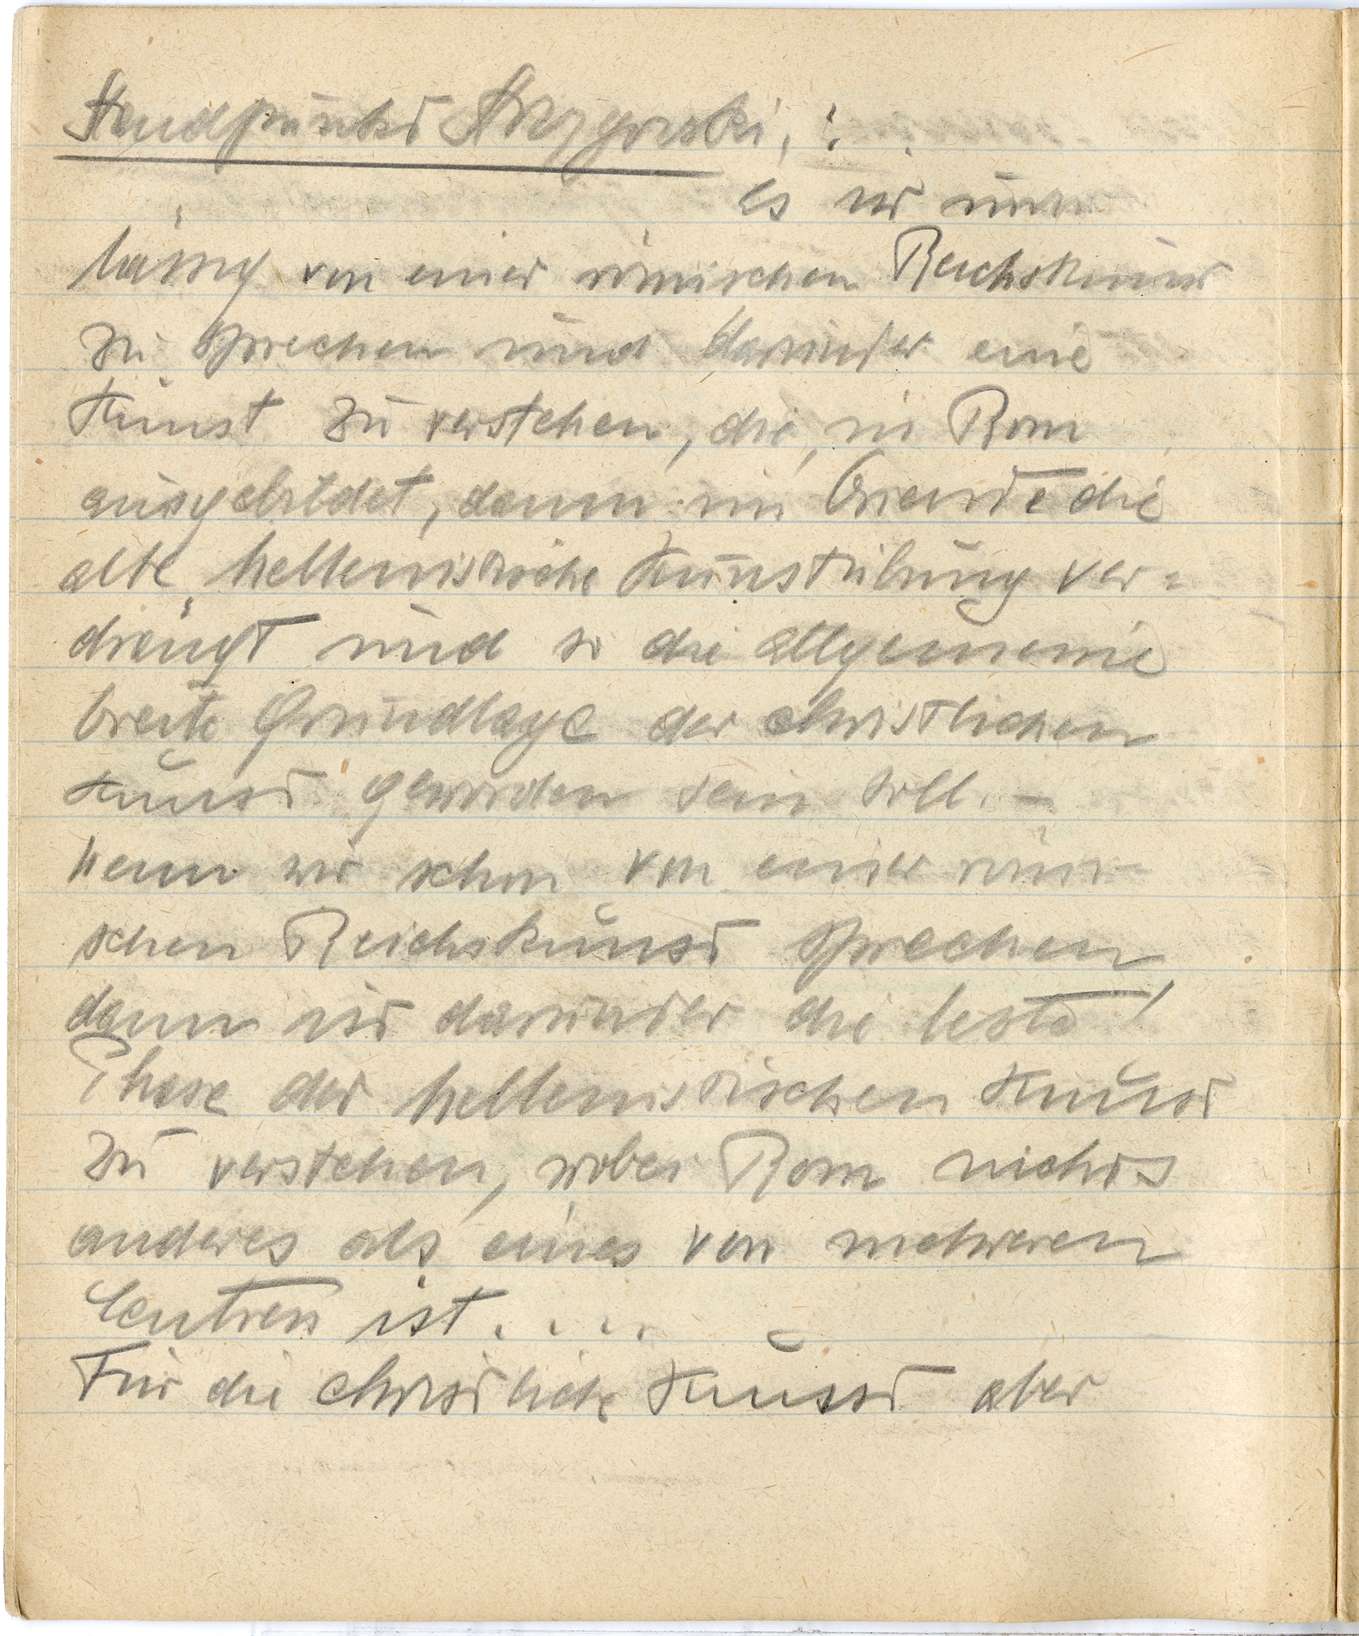 Standpunkt Strzygowski,:
es ist unzu
lässig von einer römischen Reichskunst
zu sprechen und darunter eine
Kunst zu verstehen, die, in Rom
ausgebildet, dann im Oriente die
alte hellenistische Kunstübung ver=
drängt und so die allgemeine
breite Grundlage der christlichen
Kunst geworden sein soll. –
Wenn wir schon von einer römi-
schen Reichskunst sprechen,
dann ist darunter die letzte
Phase der hellenistischen Kunst
zu verstehen, wobei Rom nichts
anderes als eines von mehreren
Centren ist....
Für die christliche Kunst aber